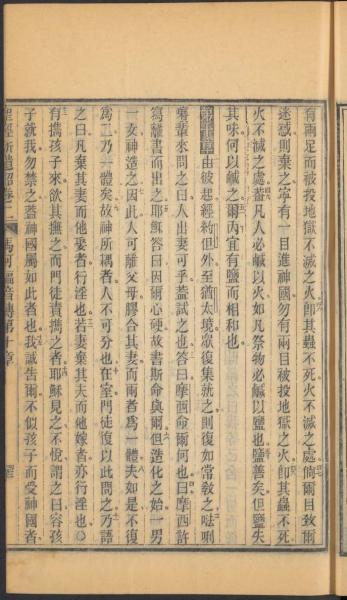 有兩足而被投地獄不滅之火卽其蟲不死火不滅之處倘爾目致爾
迷惑則棄之寧有一目進神國勿有兩目被投地獄之火卽其蟲不死
火不滅之處蓋凡人必鹹以火如凡祭物必鹹以鹽也鹽善矣但鹽失
其味何以鹹之爾內宜有鹽而相和也
第十章由彼起經約但外至猶太境眾復集就之則復如常教之𠵽唎
曁輩來問之曰人出妻可乎葢試之也答曰摩西命爾何也曰摩西許
寫離書而出之耶穌答曰因爾心硬故書斯命與爾但造化之始一男
一女神造之因此人可離父母膠合其妻而兩者爲一體夫如是不復
爲二乃一體矣故神所耦者人不可分也在室門徒復以此問之乃語
之曰凡棄其妻而他娶者行淫也若妻棄其夫而他嫁者亦行淫也○
有攜孩子來欲其撫之而門徒責攜之者耶穌見之不悅謂之曰容孩
子就我勿禁之葢神國屬如此者也我誠告爾不似孩子而受神國者
聖經新遺詔卷二 馬可福音傳第十章